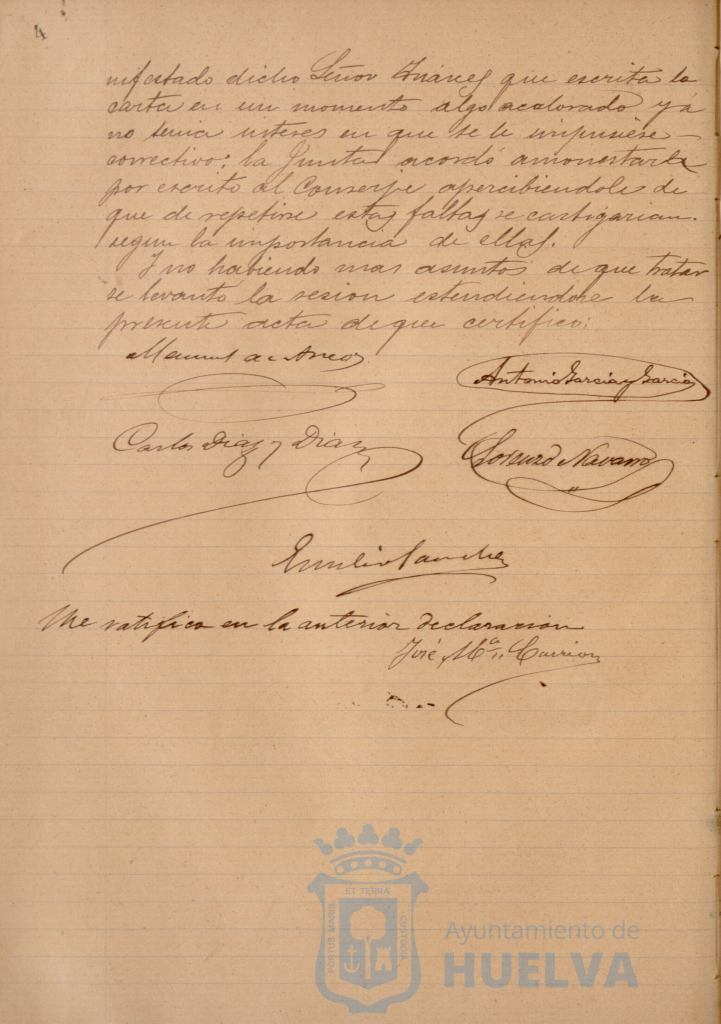 4
nifestado dicho Señor Suárez que escrita la
carta en un momento algo acalorado yá
no tenia interes en que se le impusiese
correctivo: la Junta acordó amonestarle
por escrito al Conserje apercibiendole de
que de repetirse estas faltas se castigarian
segun la importancia de ellas.
Y no habiendo mas asuntos de que tratar
se levantó la sesion estendiendose la
presente acta de que certifico:
Manuel de
Antonio Garcia y Garcia
Carlos Diaz y Diaz
Lorenzo Navarro
Emilio Sanchez
Me ratifico en la anterior declaracion
José Mª Carrion
ET TERRÆ
PORTUS MARIS
CUSTODIA
Ayuntamiento de
HUELVA